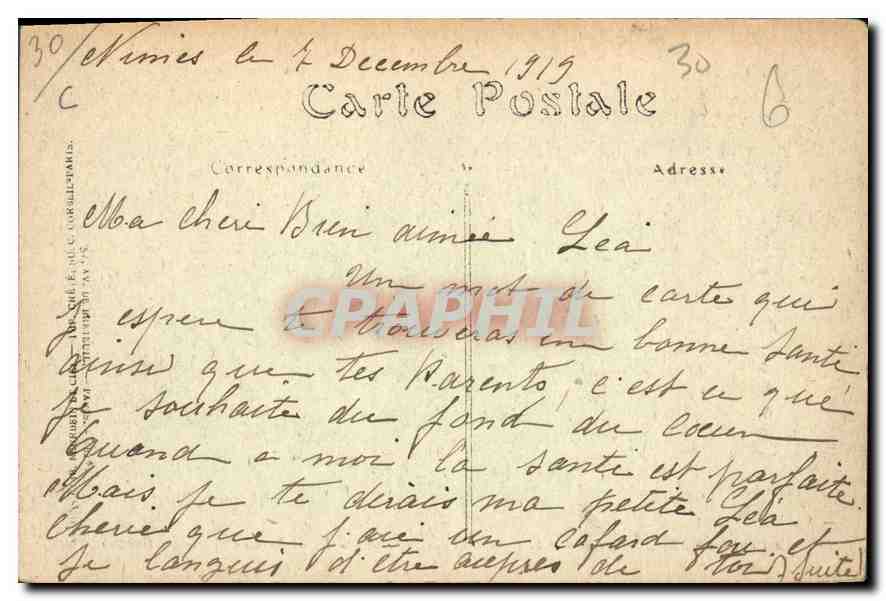 30/ Nimes le 7 Decembre 1919 30
C 6
Carte Postale
Correspondance Adresse
Ma cheri Bien aimée Léa
Un mot de carte qui
J espere te trouveras en bonne santé
ainsi que tes Parents, c'est ce que
je souhaite du fond du cœur
Quand a moi la santé est parfaite
Mais je te dirais ma petite Léa
cherie que j'ai un cafard fou et
je languis d'être aupres de toi (suite)
CPAPHIL